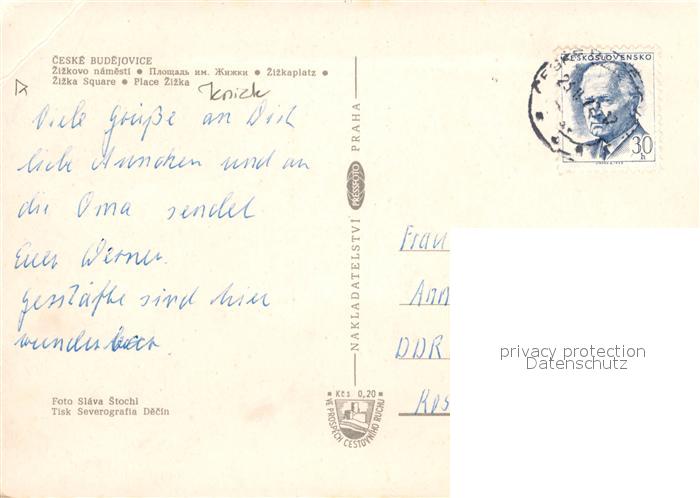 ČESKÉ BUDĚJOVICE
Žižkovo náměstí • Площадь им. Жижки • Žižkaplatz •
Žižka Square • Place Žižka
Viele Grüße an Dich
liebe Ännchen und an
die Oma sendet
Euer Werner.
sind hier
wunderbar
Foto Sláva Štochl
Tisk Severografia Děčín
NAKLADATELSTVÍ PRESSFOTO PRAHA
Kčs 0,20
VE PROSPĚCH CESTOVNÍHO RUCHU
ČESKOSLOVENSKO
30 h
Frau
Ann
DDR
Ros
privacy protection
Datenschutz